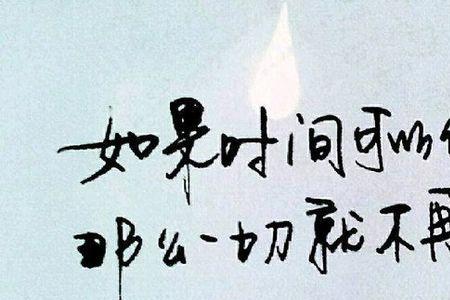 如果时间可以
那么一切就不再